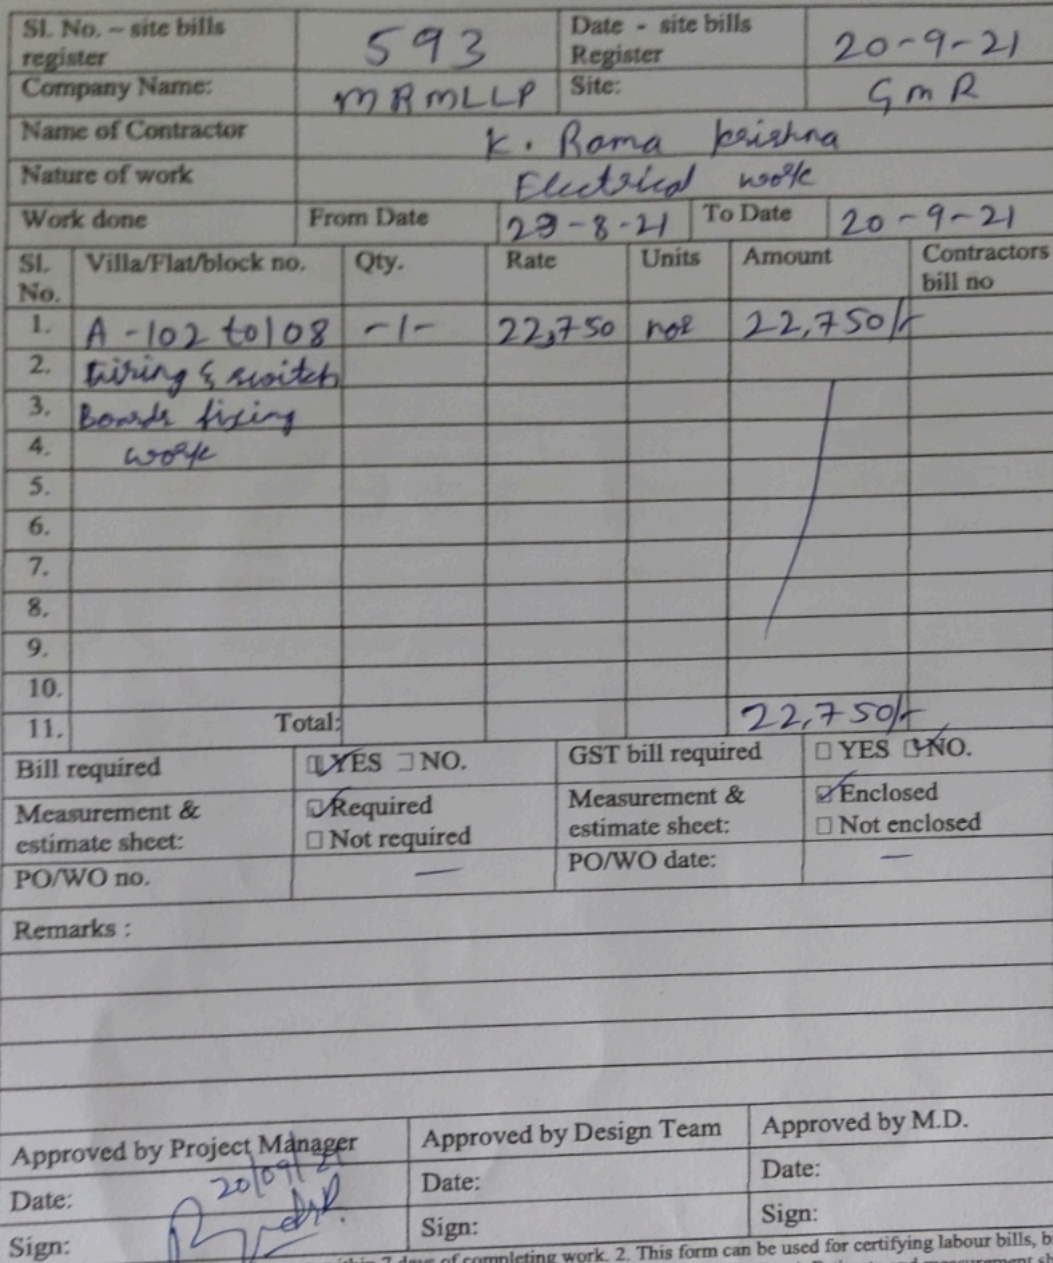 Sl. No. – site bills register 593 Date - site bills Register 20-9-21
Company Name: MRMLLP Site: GMR
Name of Contractor K. Rama Krishna
Nature of work Electrical work
Work done From Date 23-8-21 To Date 20-9-21
Sl. No. Villa/Flat/block no. Qty. Rate Units Amount Contractors bill no
1. A-102 to 108 -1- 22,750 no2 22,750/-
2. & switch
3. Boards fixing
4. work
5.
6.
7.
8.
9.
10.
11. Total: 22,750/-
Bill required YES NO. GST bill required YES NO.
Measurement & estimate sheet: Required Measurement & estimate sheet: Enclosed
Not required Not enclosed
PO/WO no. — PO/WO date: —
Remarks :
Approved by Project Manager Approved by Design Team Approved by M.D.
Date: 20/09/21 Date: Date:
Sign: Sign: Sign:
7 days of completing work. 2. This form can be used for certifying labour bills, b